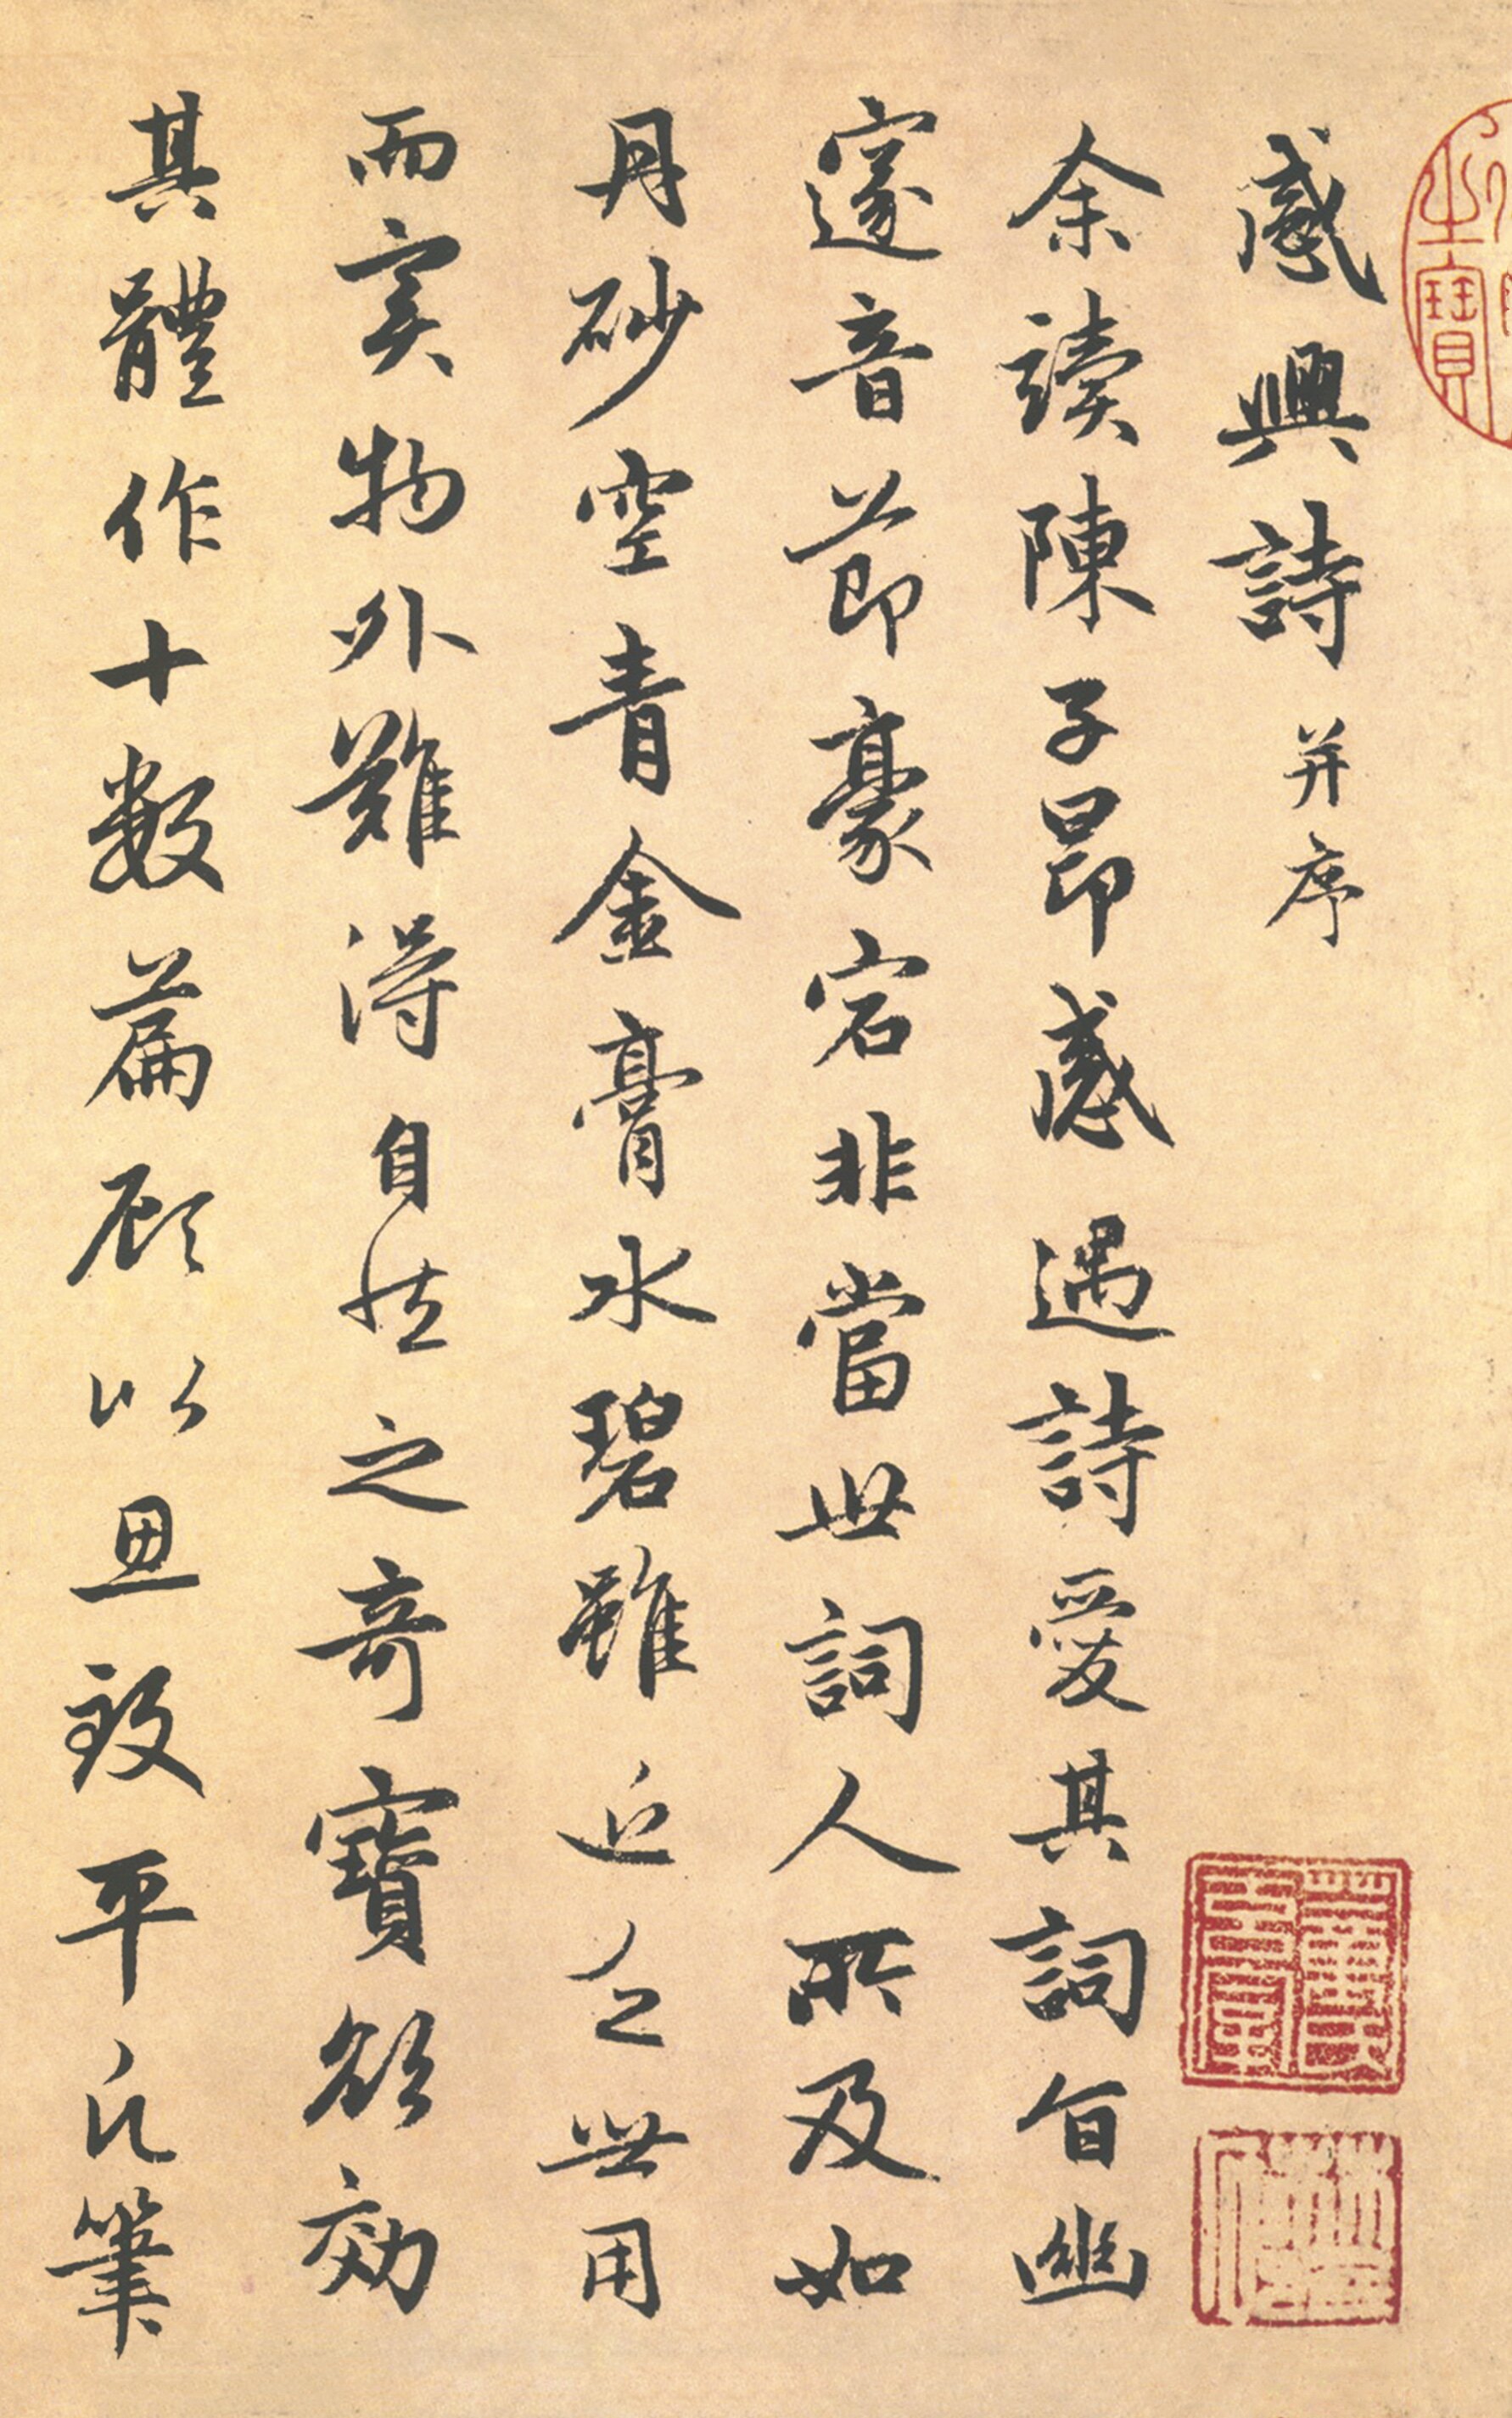 感興詩并序
余讀陳子昂感遇詩愛其詞旨幽
邃音節豪宕非當世詞人所及如
丹砂空青金膏水碧雖近乏世用
而实物外難得自然之奇寶欲効
其體作十數篇顧以思致平凡筆
之寶